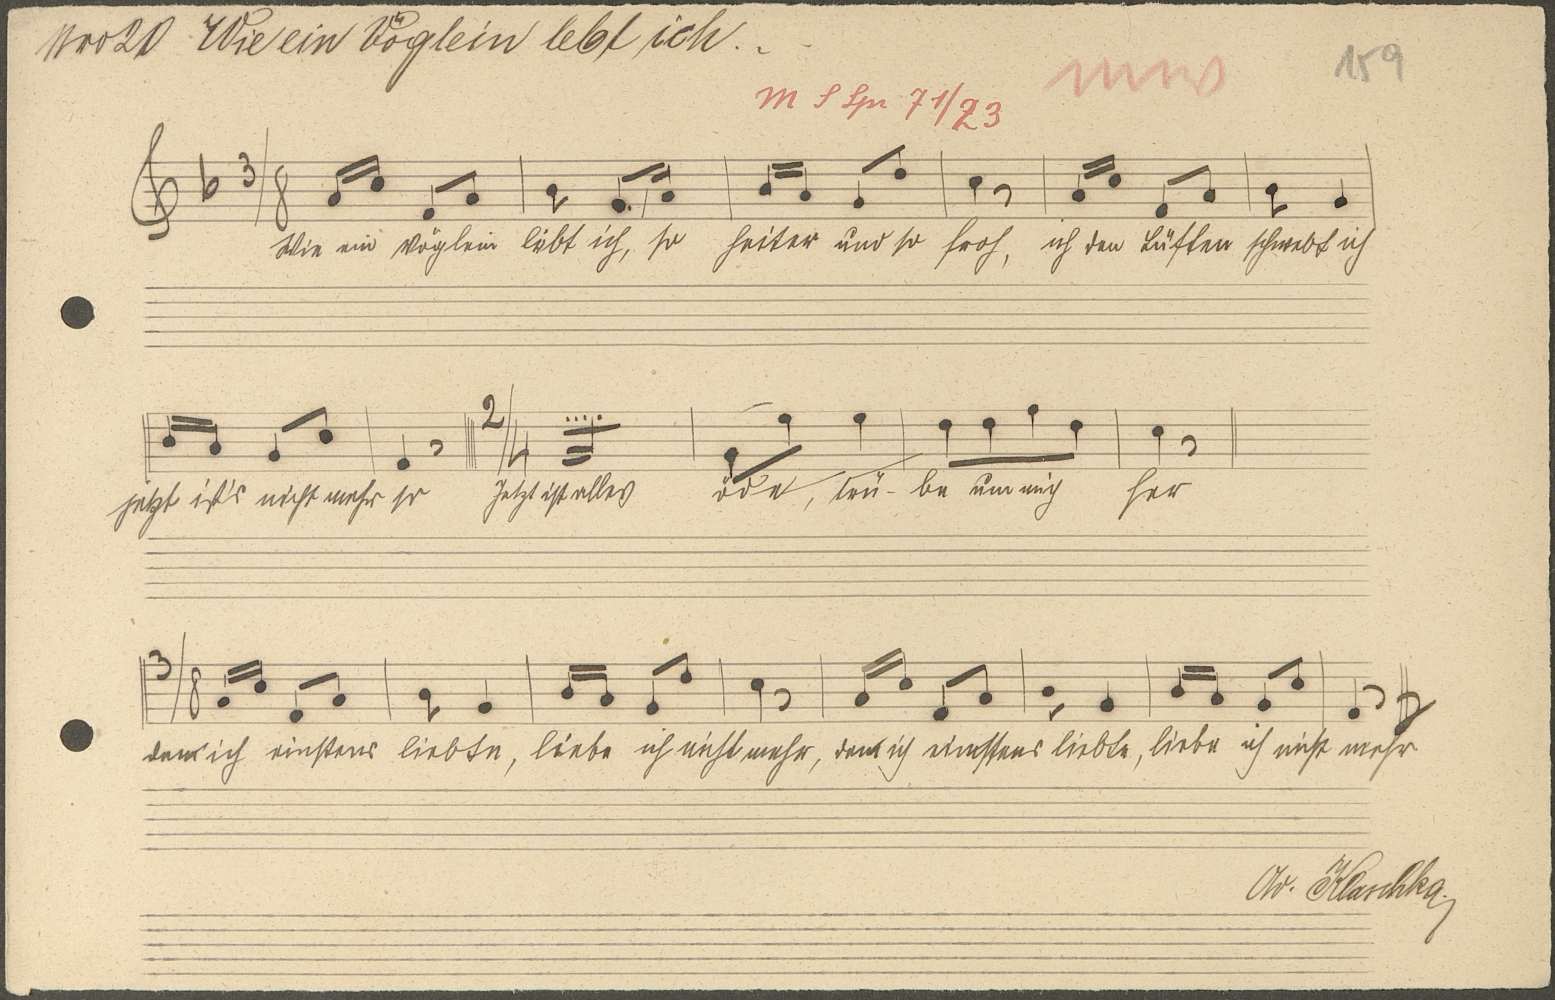 Nro 20 Wie ein Vöglein lebt ich..
159
M S Spr 71/23
3/8
Wie ein Vöglein lebt ich, so heiter und so froh, ich den Lüften schwebt ich
2/4
jetzt ist's nicht mehr so Jetzt ist alles öde, trü- be um mich her
3/8
dem ich einstens liebte, liebe ich nicht mehr, dem ich einstens liebte, liebe ich nicht mehr
Ad. Klaschka